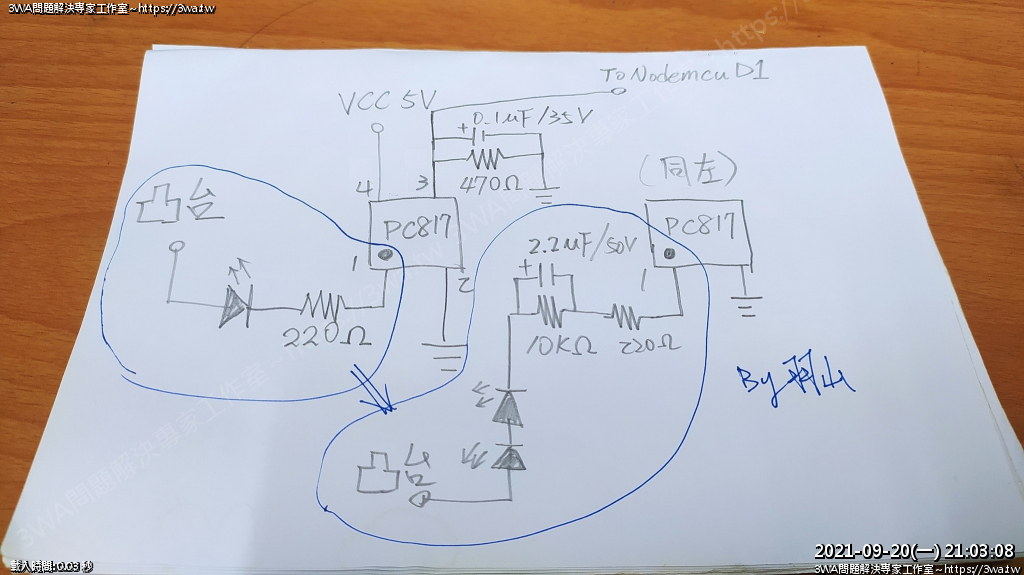 3WA問題解決專家工作室~https://3wa.tw
To Nodemcu D1
VCC 5V
+ 0.1μF/35V
470Ω
4 3
凸台
PC817
1
2
220Ω
(同左)
PC817
2.2μF/50V
+
1
10KΩ 220Ω
凸台
By 羽山
3WA問題解決專家工作室~https://3wa.tw
載入時間:0.03 秒
2021-09-20(一) 21:03:08
3WA問題解決專家工作室~https://3wa.tw